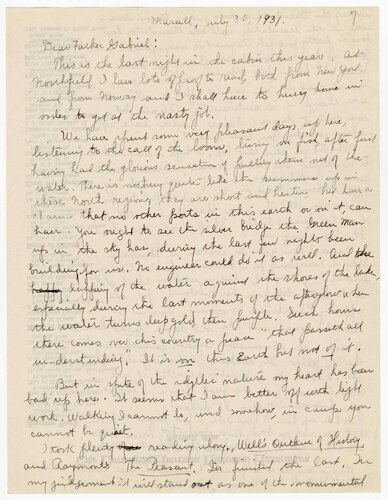 Marall, July 30, 1931.
Dear Father Gabriel:
This is the last night in the cabin this year. At
Northfield I have lots of proof to read, both from New York
and from Norway and I shall have to hurry home in
order to get at the nasty job.
We have spent some very pleasant days up here,
listening to the call of the loons, living on fish, after first
having had the glorious sensation of pulling them out of the
water. There is nothing quite like the summers up in
these North regions; they are short and hectic but have a
charm that no other parts in this earth or on it, can
have. You ought to see the silver bridge the Green Man
up in the sky has, during the last few nights been
building for us. No engineer could do it as well. And the
lapping of the water against the shores of the lake,
especially during the last moments of the afterglow when
the water turns deep gold, then purple. Such hours
there comes over this country a peace "that passeth all
understanding". It is on this Earth but not of it.
But in spite of the idyllic nature my heart has been
bad up here. It seems that I am better off with light
work. Walking I cannot do, and somehow, in camps you
cannot be quiet.
I took plenty reading along, Well's Outline of History,
and Raymonts The Peasant. I've finished the last. In
my judgement it will stand out as one of the monumental